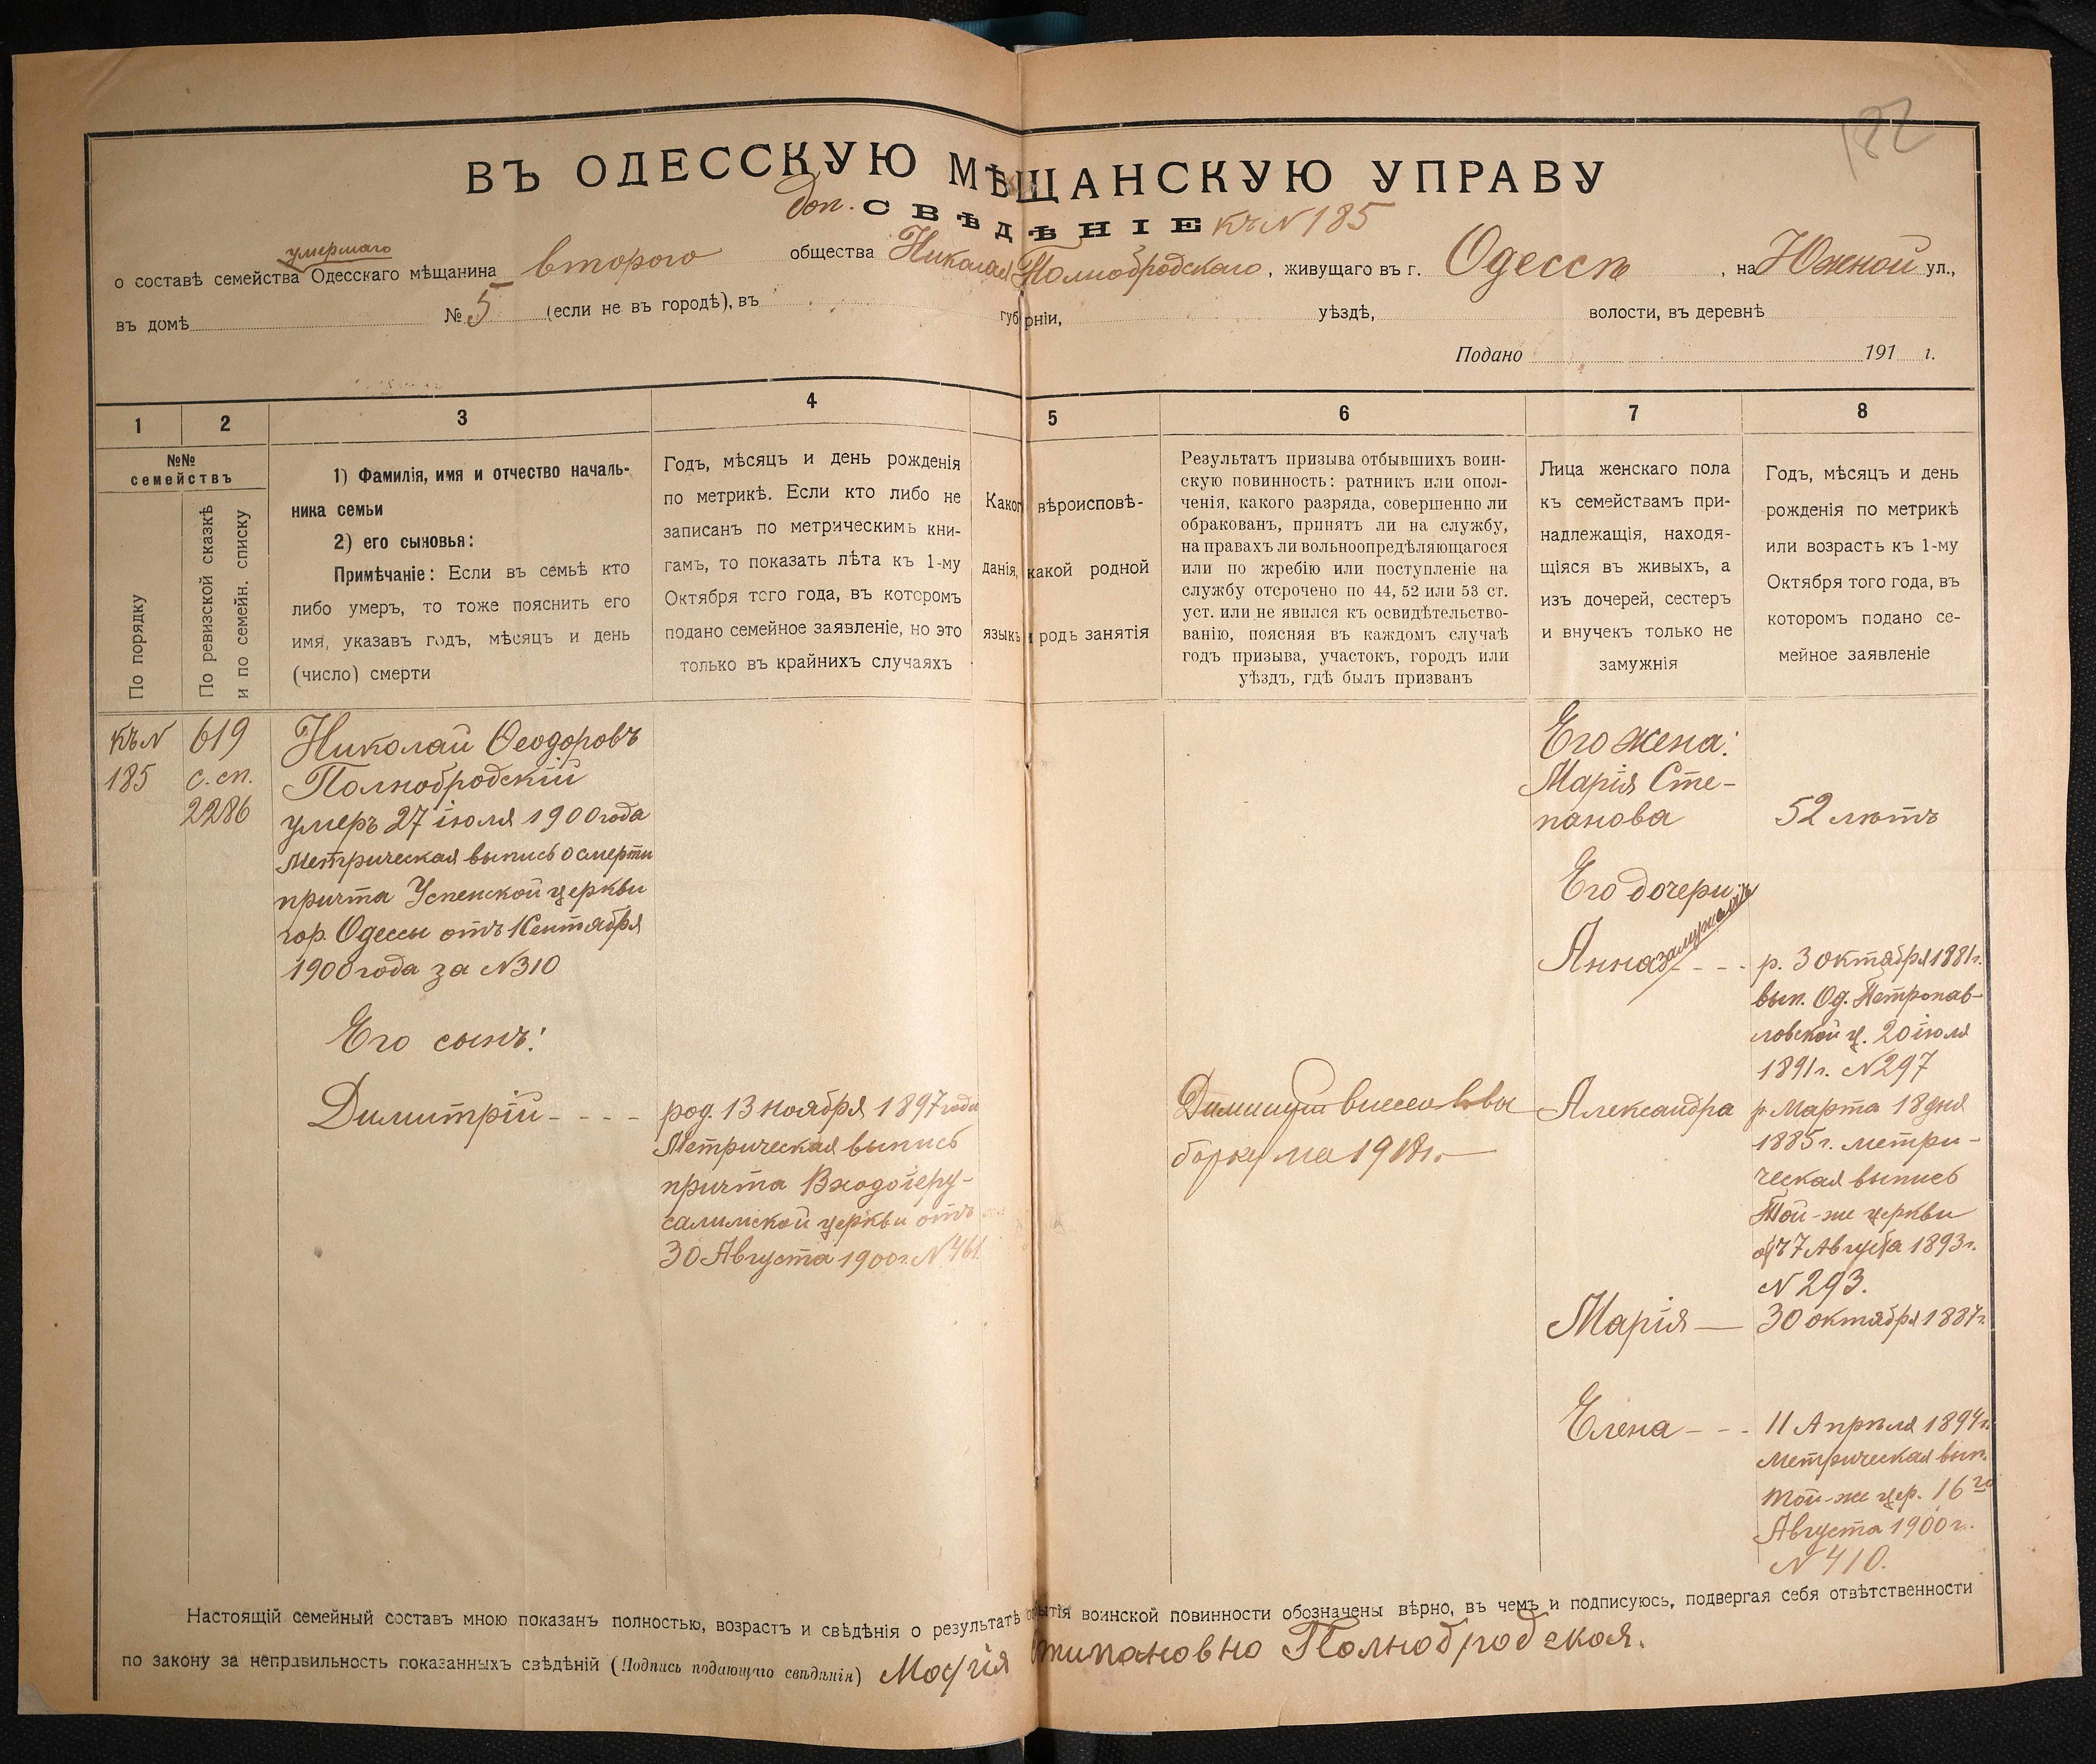 182
ВЪ ОДЕССКУЮ МѢЩАНСКУЮ УПРАВУ
доп. СВѢДѢНІЕ къ N 185
умершаго
о составѣ семейства Одесскаго мѣщанина второго общества Николая Полнобродскаго, живущаго въ г. Одессѣ, на Южной ул.,
въ домѣ № 5 (если не въ городѣ), въ губерніи, уѣздѣ, волости, въ деревнѣ
Подано 191 г.
1 2 3 4 5 6 7 8
№№
семействъ
По порядку
По ревизской сказкѣ
и по семейн. списку
1) Фамилія, имя и отчество началь-
ника семьи
2) его сыновья:
Примѣчаніе: Если въ семьѣ кто
либо умеръ, то тоже пояснить его
имя, указавъ годъ, мѣсяцъ и день
(число) смерти
Годъ, мѣсяцъ и день рожденія
по метрикѣ. Если кто либо не
записанъ по метрическимъ кни-
гамъ, то показать лѣта къ 1-му
Октября того года, въ которомъ
подано семейное заявленіе, но это
только въ крайнихъ случаяхъ
Какого вѣроисповѣ-
данія, какой родной
языкъ и родъ занятія
Результатъ призыва отбывшихъ воин-
скую повинность: ратникъ или опол-
ченія, какого разряда, совершенно ли
обракованъ, принятъ ли на службу,
на правахъ ли вольноопредѣляющагося
или по жребію или поступленіе на
службу отсрочено по 44, 52 или 53 ст.
уст. или не явился къ освидѣтельство-
ванію, поясняя въ каждомъ случаѣ
годъ призыва, участокъ, городъ или
уѣздъ, гдѣ былъ призванъ
Лица женскаго пола
къ семействамъ при-
надлежащія, находя-
щіяся въ живыхъ, а
изъ дочерей, сестеръ
и внучекъ только не
замужнія
Годъ, мѣсяцъ и день
рожденія по метрикѣ
или возрастъ къ 1-му
Октября того года, въ
которомъ подано се-
мейное заявленіе
къ N
185
619
с. сп.
2286
Николай Ѳеодоровъ
Полнобродскій
умеръ 27 іюля 1900 года
Метрическая выпись о смерти
причта Успенской церкви
гор. Одессы отъ 1 Сентября
1900 года за N 310
Его сынъ:
Димитрій - - - -
род. 13 ноября 1897 года
Метрическая выпись
причта Входоіеру-
салимской церкви отъ
30 Августа 1900 г. N 461
Димитрій внесенъ въ вы
борку на 1918 г.
Его жена:
Марія Сте-
панова
52 лѣтъ
Его дочери:
Анна замужемъ - - -
р. 3 октября 1881 г.
вып. Од. Петропав-
ловской ц. 20 іюля
1891 г. N 297
Александра
р. Марта 18 дня
1885 г. метри-
ческая выпись
Той-же церкви
отъ 7 Августа 1893 г.
N 293.
Марія —
30 октября 1887 г.
Елена - - -
11 Апрѣля 1894 г.
Метрическая вып.
той-же цер. 16го
Августа 1900 г.
N 410.
Настоящій семейный составъ мною показанъ полностью, возрастъ и свѣдѣнія о результатѣ отбытія воинской повинности обозначены вѣрно, въ чемъ и подписуюсь, подвергая себя отвѣтственности
по закону за неправильность показанныхъ свѣдѣній (Подпись подающаго свѣдѣнія) Марія Стипановно Полнобродская.